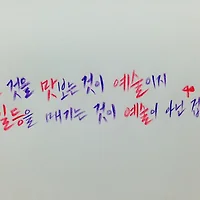 것들 맛보는 것이 예술이지
일등을 매기는 것이 예술이 아닌 겁